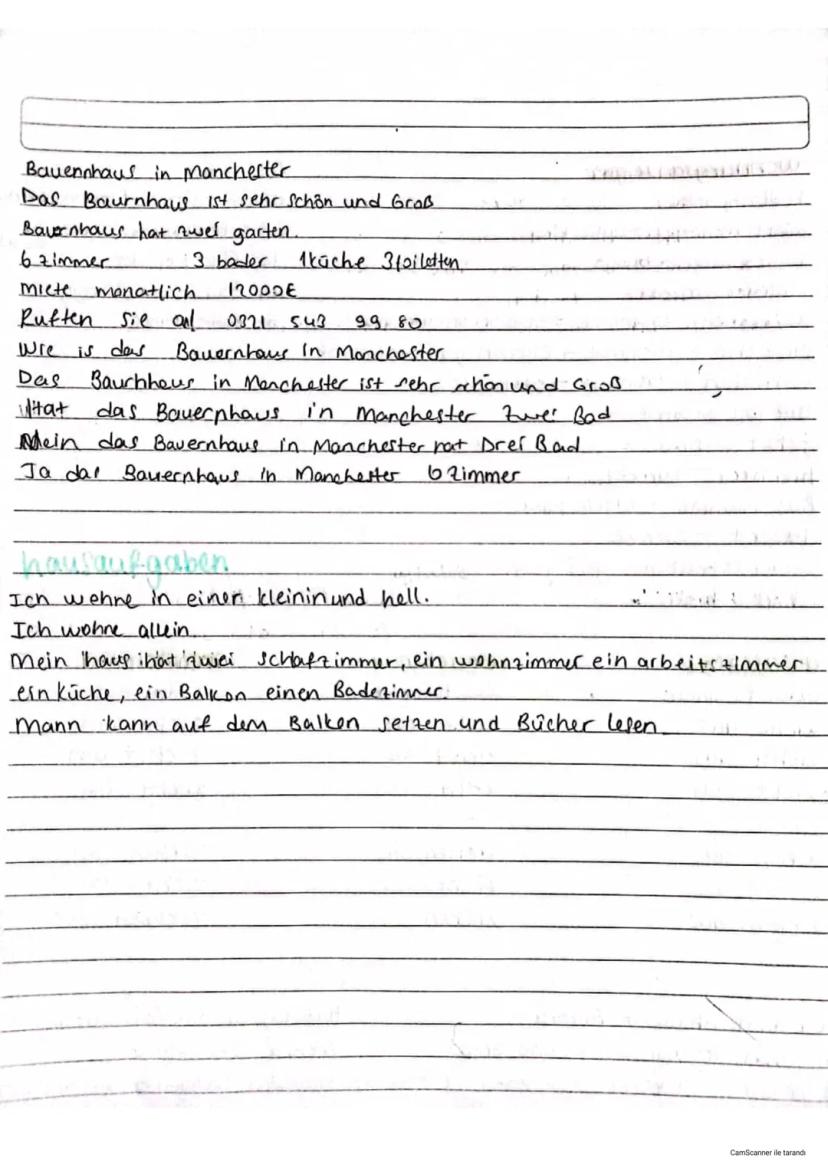 Bauennhaus in Manchester
Das Baurnhaus ist sehr schön und Groß
Bauernhaus hat zwei garten.
6 zimmer 3 bader 1küche 3toiletten
miete monatlich 12000€
Ruften sie al 0321 543 99 80
Wie is das Bauernhaus in Manchester
Das Baurhhaus in Manchester ist sehr schön und Groß
Hat das Bauernhaus in Manchester zwei Bad
Mein das Bauernhaus in Manchester hat Drei Bad
Ja das Bauernhaus in Manchester 6 zimmer
hausaufgaben
Ich wohne in einen kleinin und hell.
Ich wohne allein.
Mein haus hat zwei schlafzimmer, ein wohnzimmer ein arbeitszimmer
ein küche, ein Balkon einen Badezimmer.
Mann kann auf dem Balkon setzen und Bücher lesen
CamScanner ile tarandı